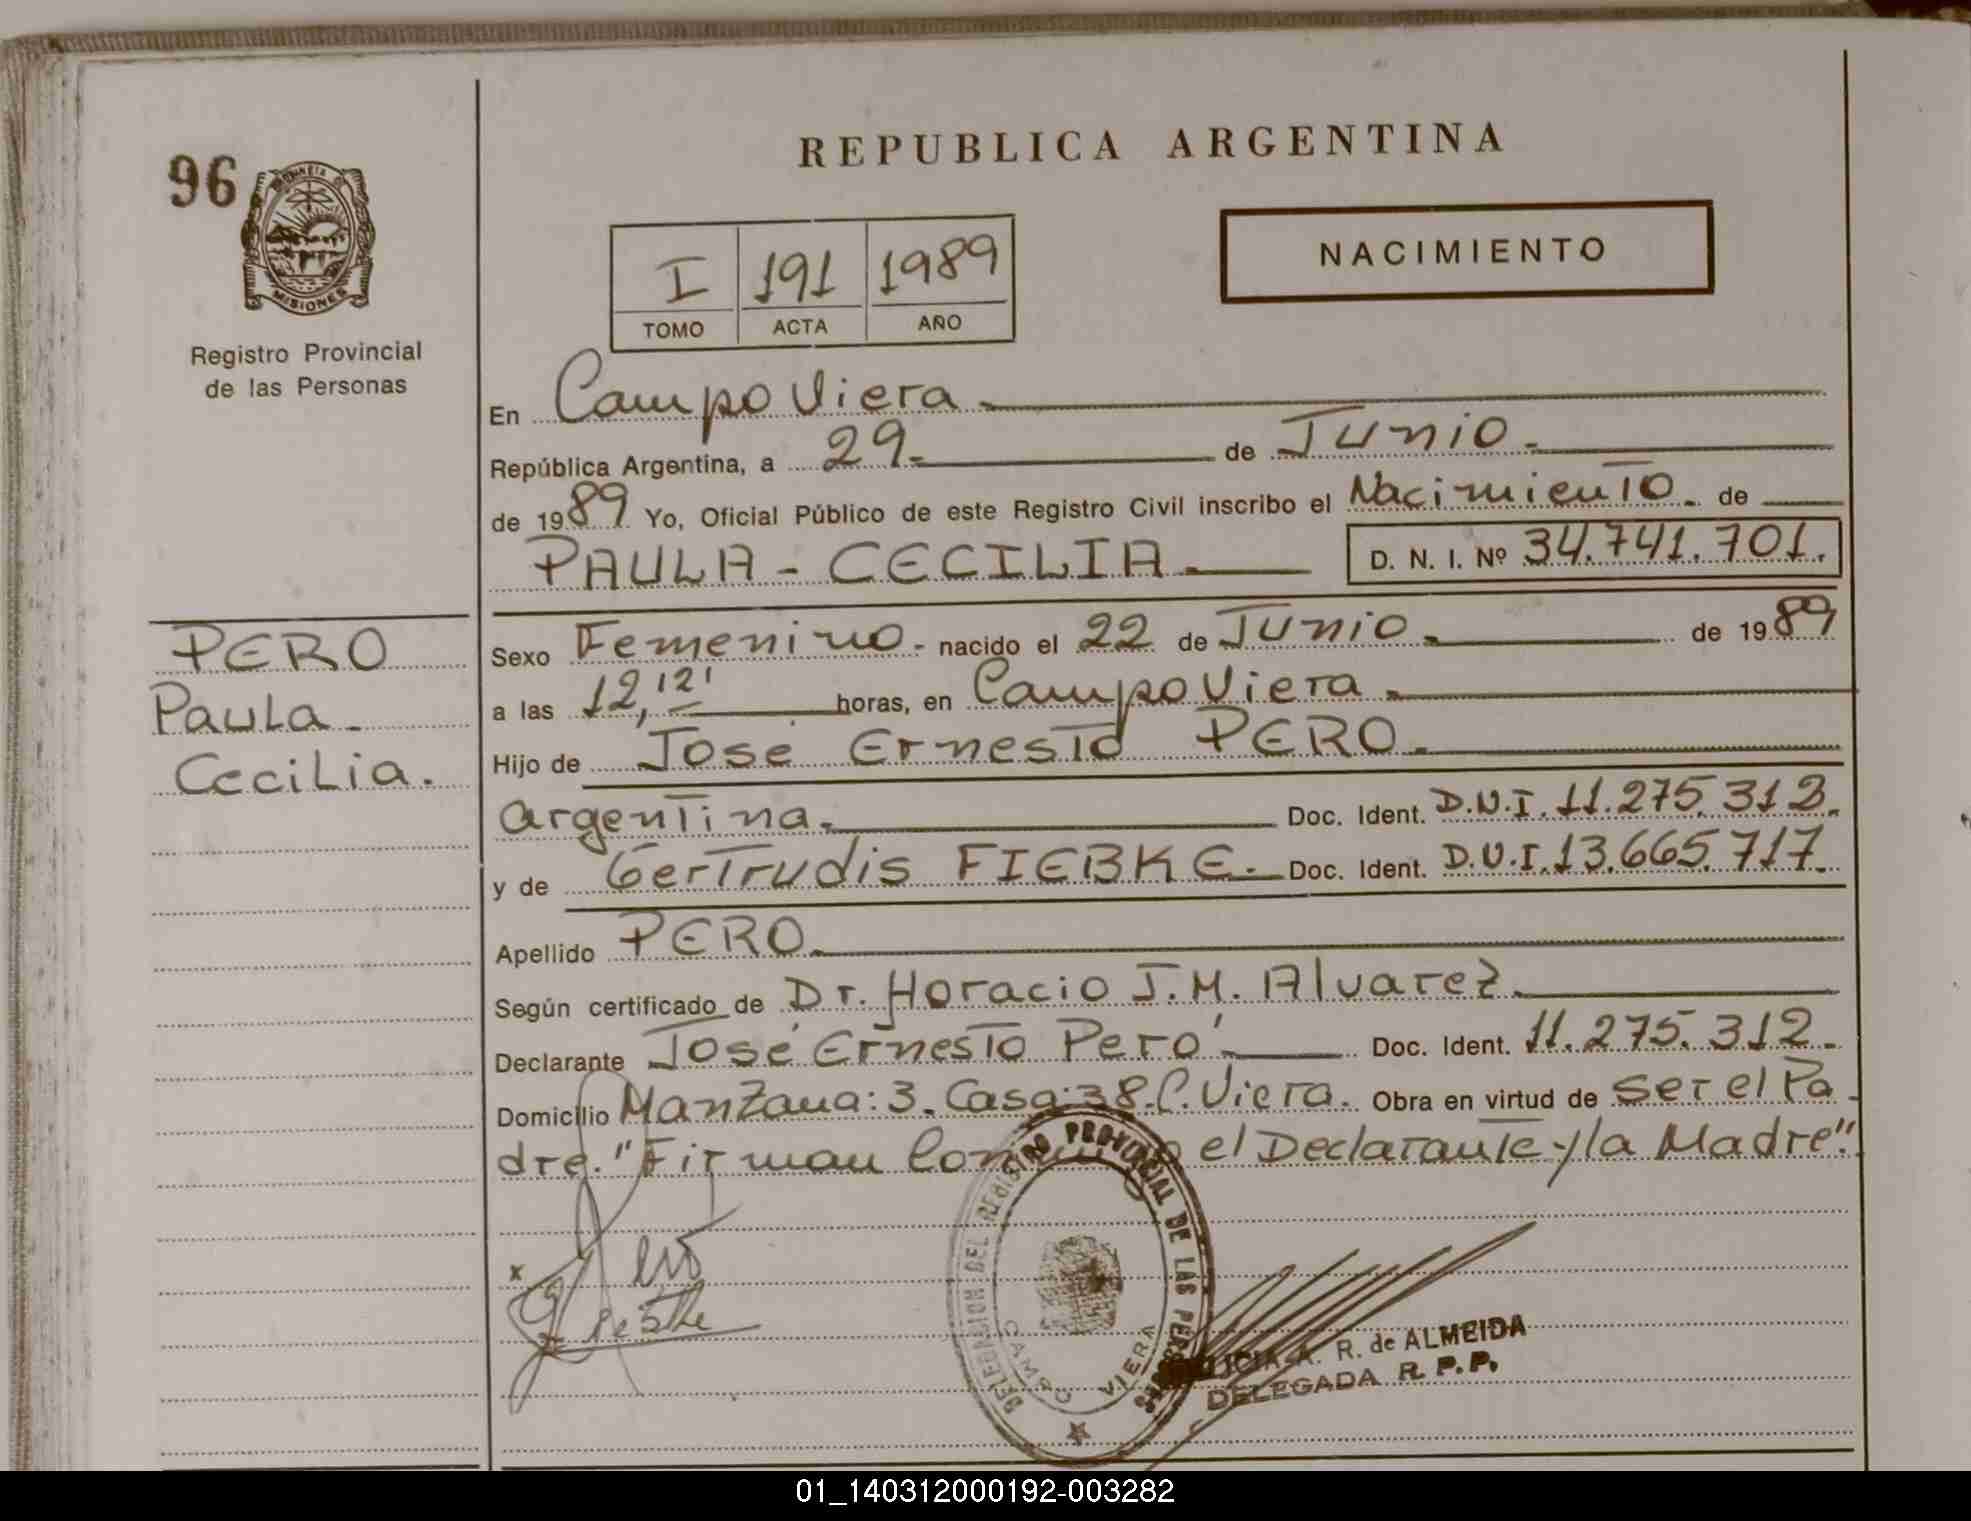 REPUBLICA ARGENTINA
96
MISIONES
Registro Provincial
de las Personas
NACIMIENTO
I 191 1989
TOMO ACTA AÑO
En Campo Viera.
República Argentina, a 29. de Junio.
de 1989. Yo, Oficial Público de este Registro Civil inscribo el Nacimiento. de
PAULA - CECILIA. D. N. I. Nº 34.741.701.
PERO
Paula.
Cecilia.
Sexo Femenino. nacido el 22 de Junio. de 1989
a las 12,12' horas, en Campo Viera.
Hijo de José Ernesto PERO.
Argentina. Doc. Ident. D.N.I. 11.275.312.
y de Gertrudis FIEBKE. Doc. Ident. D.N.I. 13.665.717.
Apellido PERO.
Según certificado de Dr. Horacio J.M. Alvarez.
Declarante José Ernesto Peró. Doc. Ident. 11.275.312.
Domicilio Manzana: 3. Casa: 38. C. Viera. Obra en virtud de Ser el Pa
dre. "Firman el Declarante y la Madre".
x
DELEGACION DEL REGISTRO PROVINCIAL DE LAS PERSONAS
CAMPO VIERA
A. R. de ALMEIDA
DELEGADA R. P. P.
01_140312000192-003282